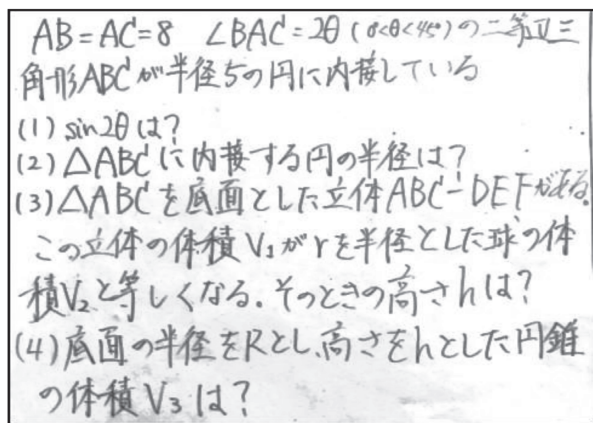 AB=AC=8 ∠BAC=2θ (0<θ<45°)の二等辺三
角形ABCが半径5の円に内接している
(1) sin2θは?
(2) △ABCに内接する円の半径は?
(3) △ABCを底面とした立体ABC-DEFがある。
この立体の体積V₁がrを半径とした球の体
積V₂と等しくなる.そのときの高さhは?
(4) 底面の半径をRとし、高さをhとした円錐
の体積V₃は?